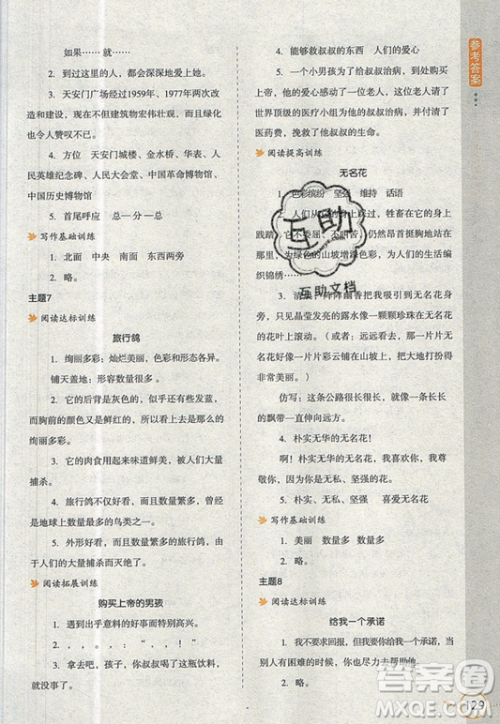 如果……就……
2. 到过这里的人，都会深深地爱上她。
3. 天安门广场经过1959年、1977年两次
改造和建设，现在不但建筑物宏伟壮观，而且绿化也
令人赞叹不已。
4. 方位 天安门城楼、金水桥、华表、人民
英雄纪念碑、人民大会堂、中国革命博物馆、
中国历史博物馆
5. 首尾呼应 总—分—总
写作基础训练
1. 北面 中央 南面 东西两旁
2. 略。
主题7
阅读达标训练
旅行鸽
1. 绚丽多彩：灿烂美丽，色彩和形态各异。
铺天盖地：形容数量很多。
2. 它的后背是灰色的，有种朴素的美，
而胸前的颜色又是鲜红的，所以整体来说是
绚丽多彩的。
3. 它的肉食用起来味道鲜美，被人们大量
捕杀。
4. 旅行鸽不仅好看，而且数量多，它曾经
是地球上数量最多的鸟类之一。
5. 外形好看、数量繁多的旅行鸽，由于
人们的大量捕杀而灭绝了。
阅读拓展训练
购买上帝的男孩
1. 遇到出乎意料的好事时特别高兴。
2. ， ， 。 ， ， ！
3. 拿去吧，孩子，你叔叔喝了这瓶饮料，
就没事了。
4. 能够救叔叔的东西 人们的爱心
5. 一个小男孩为了给叔叔治病，到处购买
上帝，他的行为感动了一位富翁，富翁请来了
世界顶级的医疗小组为他叔叔治病，并为他支付了
医药费，挽救了他叔叔的生命。
阅读提高训练
无名花
1. 色彩缤纷 坚强 维持 话语
织锦绣……
只见晶莹发亮的露水像一颗颗珍珠在无名花
的花瓣上滚动。（或者：远远看去，一片片无
名花开了，就好像一片片彩云铺在山坡上，
非常美丽。）
仿写：这条公路很长很长，就像一条长长
的飘带一直伸向前方。
3. 朴实无华的无名花，坚强的无名花，我
尊敬你，我爱你！
4. 朴实无华的无名花
5. 朴实、无私、坚强 喜爱无名花
写作基础训练
1. 美丽 数量多 数量多
2. 略。
主题8
阅读达标训练
给我一个承诺
1. 我不要求回报，但我要你给我一个承诺，
当别人有困难的时候，你也尽力去帮助他。
参考答案
129
互助
互助文档
作业帮